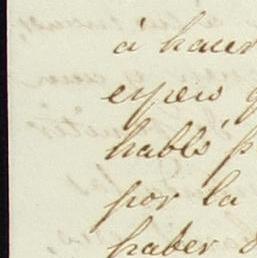 á hacer
espero q
habló p
por la
haber